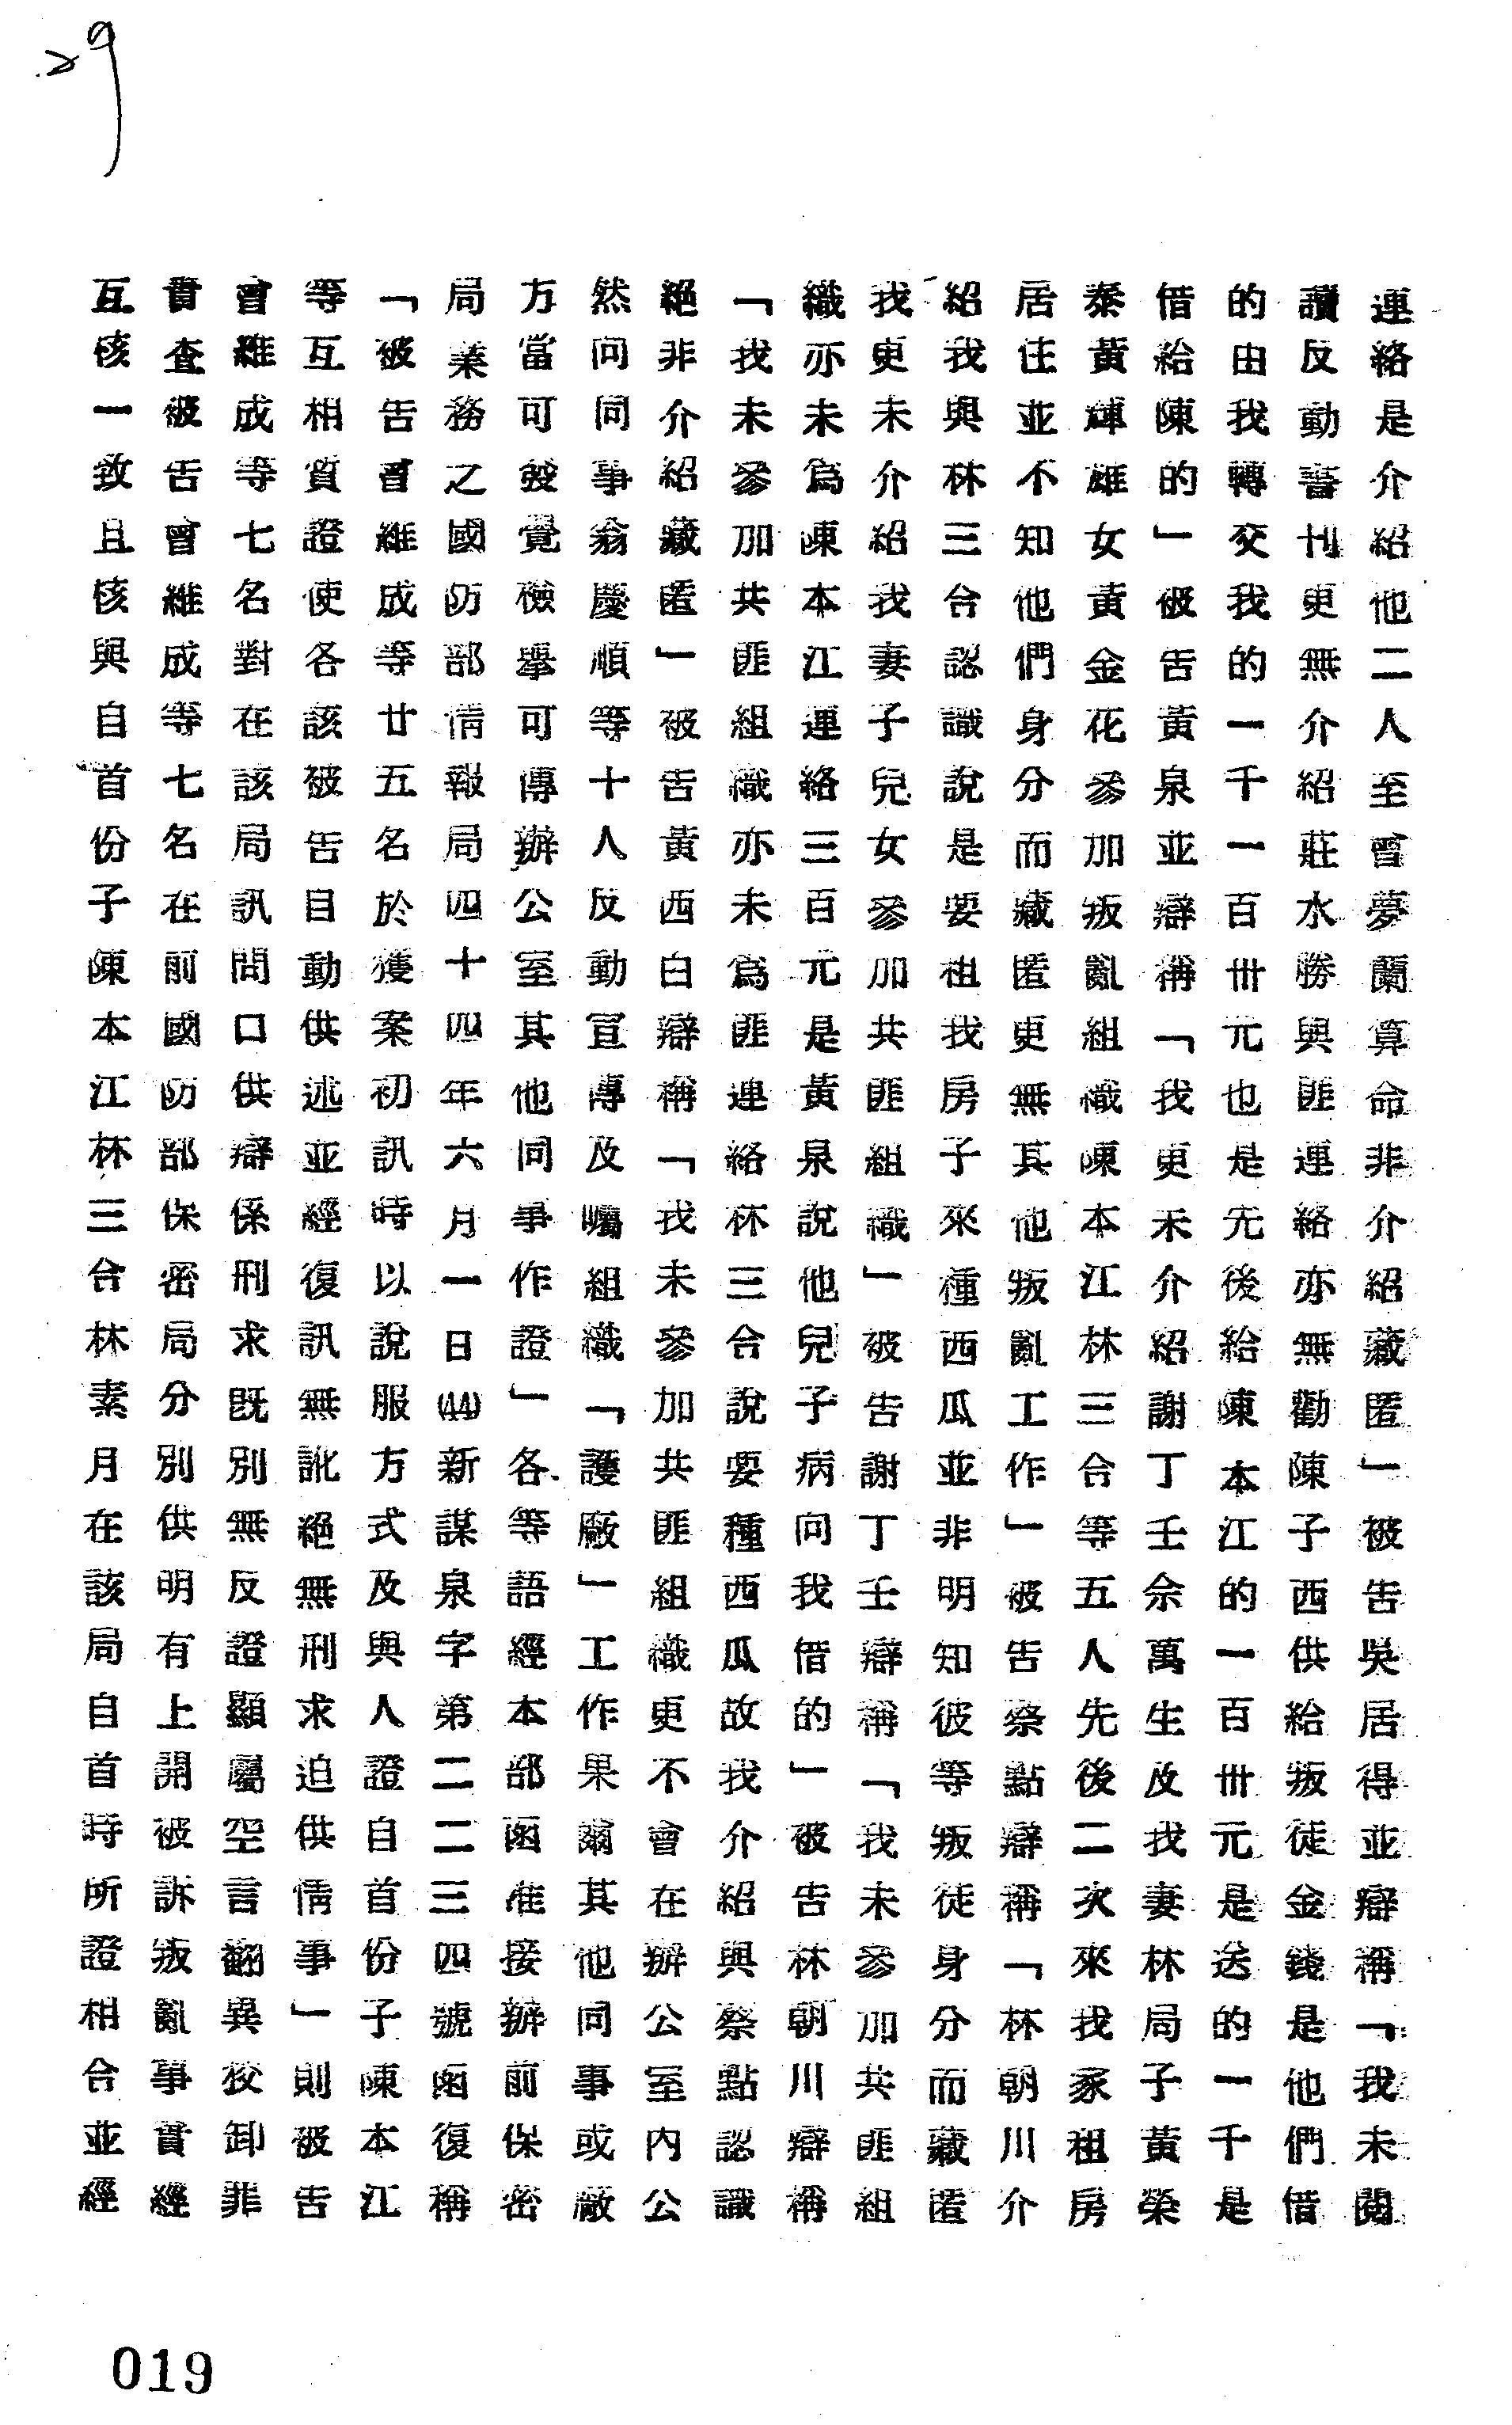 29
連絡是介紹他二人至曾夢蘭算命非介紹藏匿」被告吳居得並辯稱「我未閱
讀反動書刊更無介紹莊水勝與匪連絡亦無勸陳子西供給叛徒金錢是他們借
的由我轉交我的一千一百卅元也是先後給陳本江的一百卅元是送的一千是
借給陳的」被告黃泉並辯稱「我更未介紹謝丁壬余萬生及我妻林局子黃榮
泰黃輝雄女黃金花參加叛亂組織陳本江林三合等五人先後二次來我家租房
居住並不知他們身分而藏匿更無其他叛亂工作」被告蔡點辯稱「林朝川介
紹我與林三合認識說是要租我房子來種西瓜並非明知彼等叛徒身分而藏匿
我更未介紹我妻子兒女參加共匪組織」被告謝丁壬辯稱「我未參加共匪組
織亦未為陳本江連絡三百元是黃泉說他兒子病向我借的」被告林朝川辯稱
「我未參加共匪組織亦未為匪連絡林三合說要種西瓜故我介紹與蔡點認識
絕非介紹藏匿」被告黃西白辯稱「我未參加共匪組織更不會在辦公室內公
然向同事翁慶順等十人反動宣傳及囑組織「護廠」工作果爾其他同事或廠
方當可發覺檢舉可傳辦公室其他同事作證」各等語經本部函准接辦前保密
局業務之國防部情報局四十四年六月一日(44)新謀泉字第二二三四號函復稱
「被告曾維成等廿五名於獲案初訊時以說服方式及與人證自首份子陳本江
等互相質證使各該被告自動供述並經復訊無訛絕無刑求迫供情事」則被告
曾維成等七名對在該局訊問口供辯係刑求既別無反證顯屬空言翻異狡卸罪
責查被告曾維成等七名在前國防部保密局分別供明有上開被訴叛亂事實經
互核一致且核與自首份子陳本江林三合林素月在該局自首時所證相合並經
019